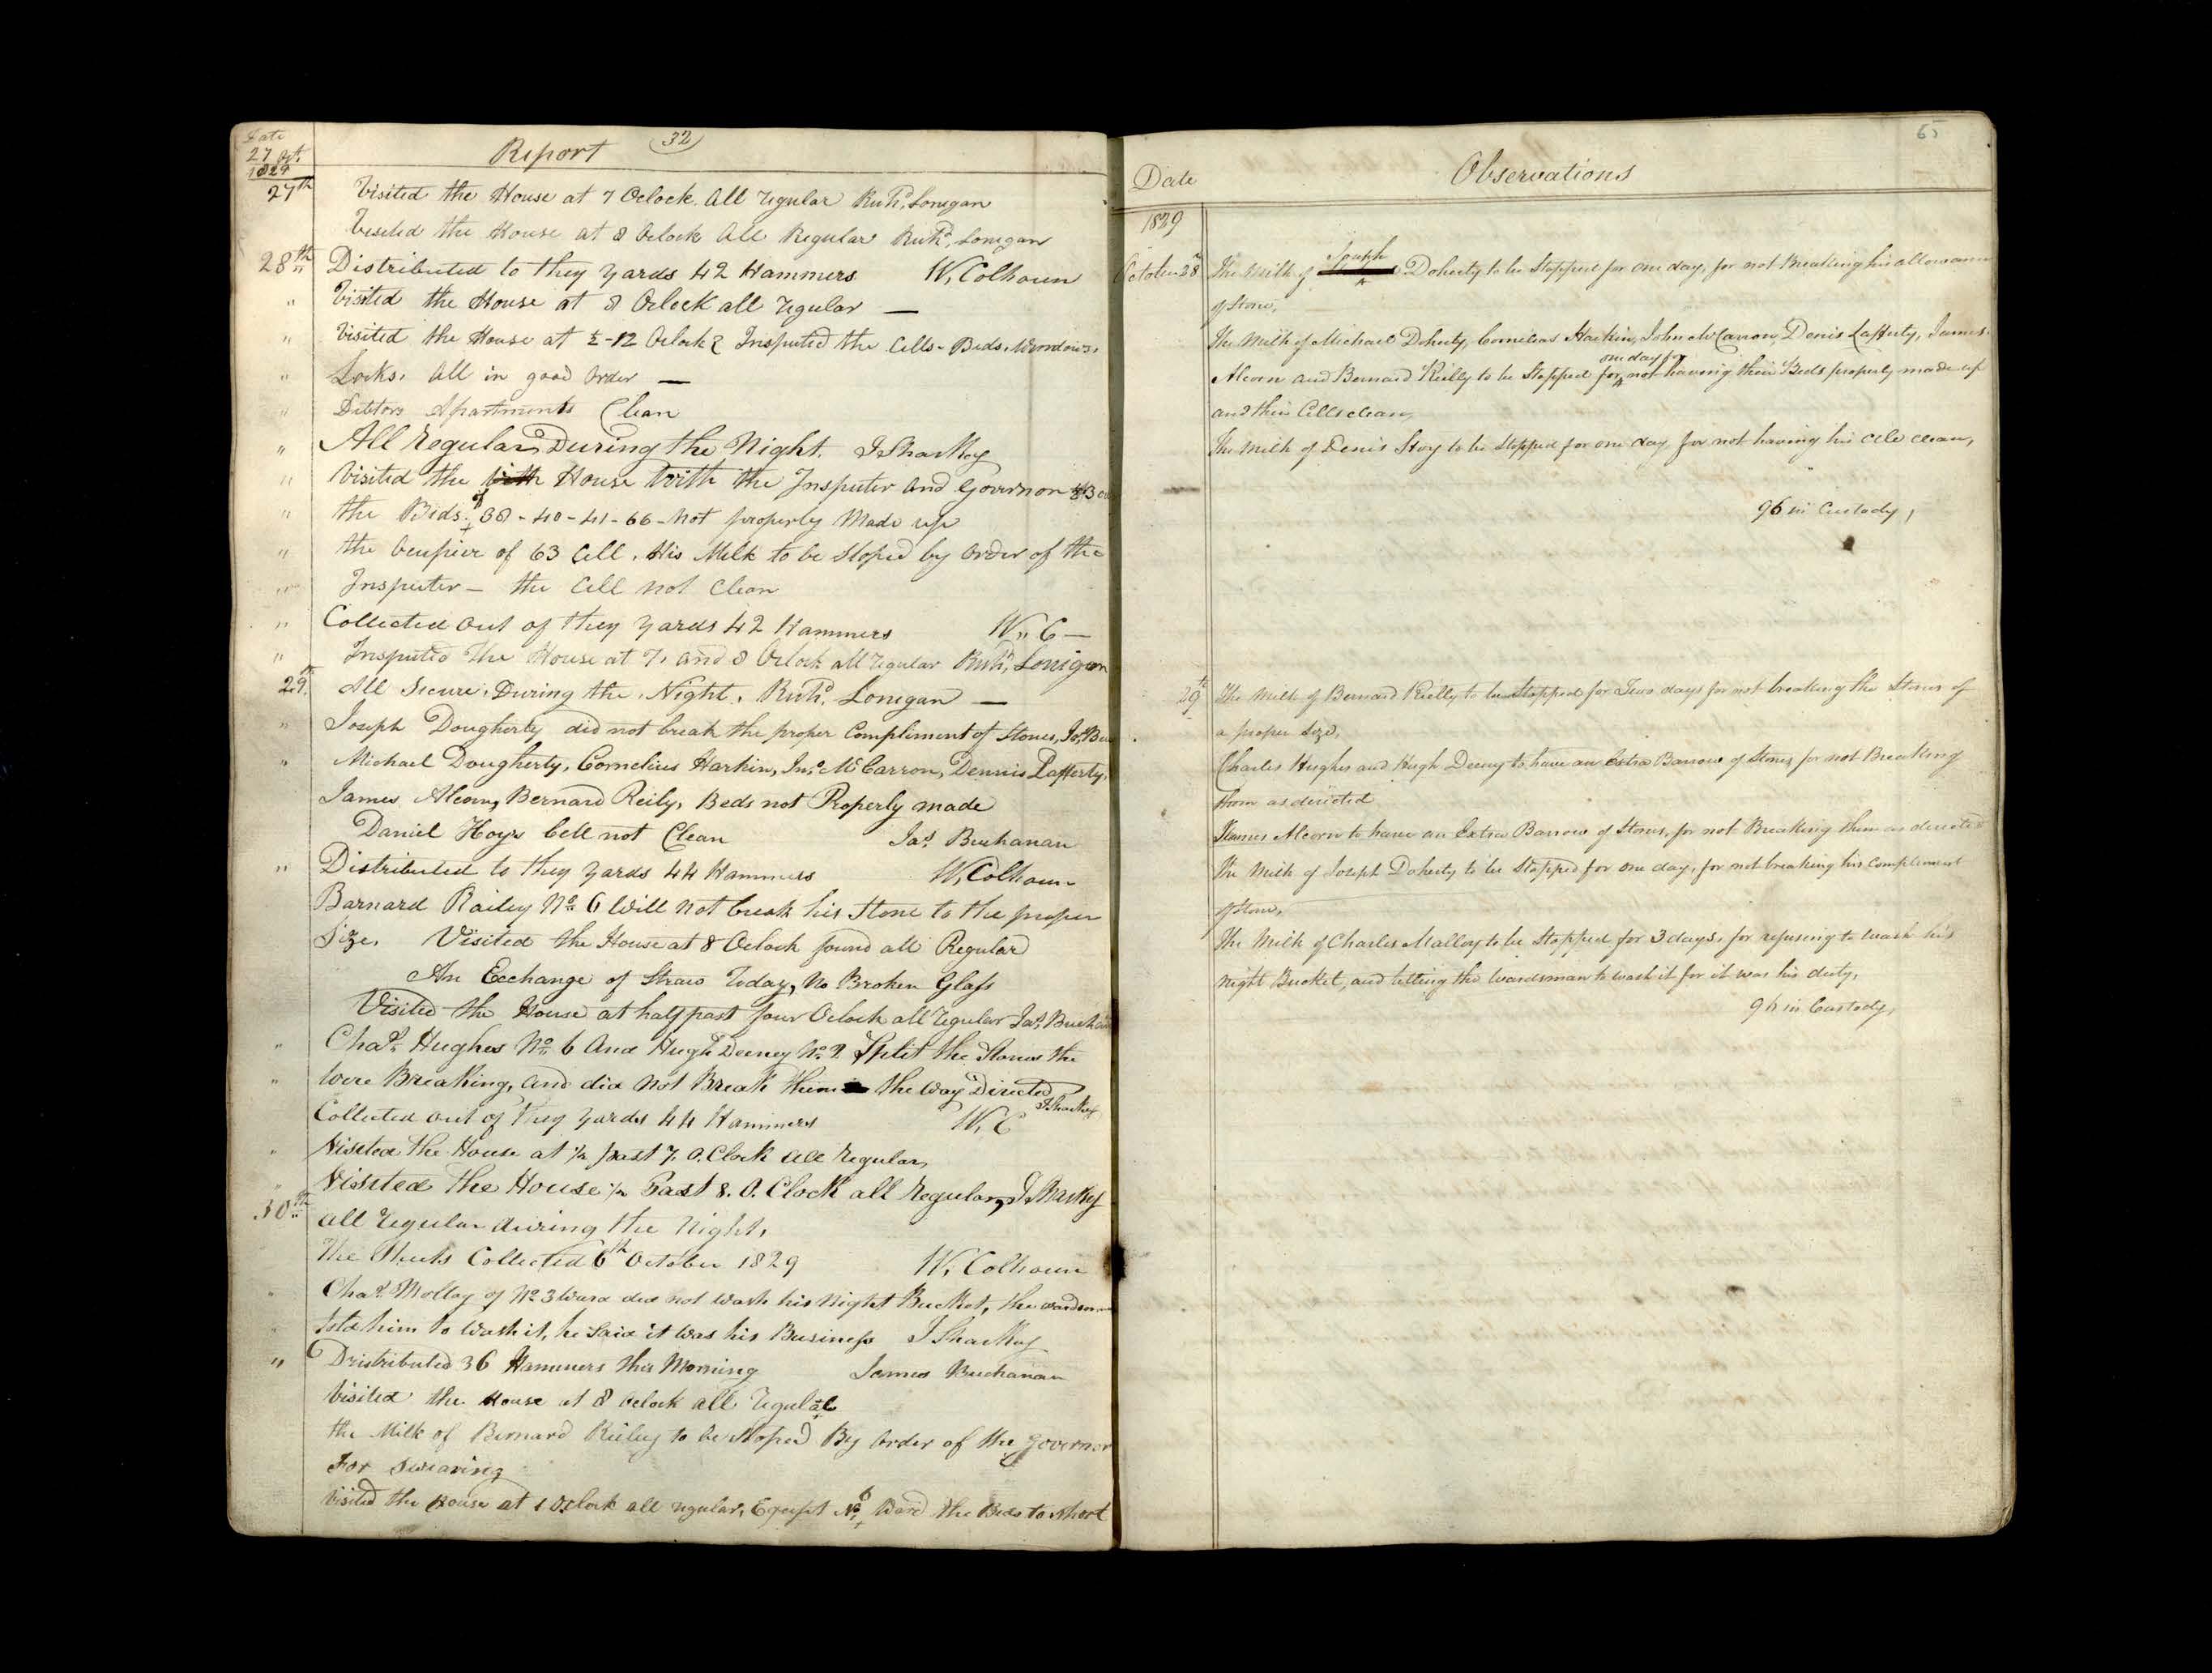 Date
27 Oct.
1829
Report 32
27th Visited the House at 7 Oclock. All regular Richd. Lonigan
Visited the House at 8 Oclock All Regular Richd. Lonigan
28th Distributed to they yards 42 Hammers W. Colhoun
" Visited the House at 8 Oclock all regular —
" Visited the House at ½-12 Oclock & Inspected the Cells - Beds, Windows,
" Locks, All in good order —
" Debtors Apartments Clean
" All Regular During the Night. J Sharkey
" Visited the House With the Inspecter and Governor
" the Beds of 38 - 40 - 41 - 66 - Not properly Made up
" the Occupier of 63 Cell. His Milk to be Stoped by Order of the
" Inspecter — the Cell not Clean
" Collected out of they yards 42 Hammers W. C —
" Inspected The House at 7, and 8 Oclock all regular Richd. Lonigan
29th. All Secure, During the, Night, Richd. Lonigan —
" Joseph Dougherty did not break the proper Compliment of Stones, Jas. Buc
" Michael Dougherty, Cornelius Harkin, Jno. McCarron, Dennis Lafferty,
James Alcorn, Bernard Reily, Beds not Properly made
Daniel Hoys Cell not Clean Jas. Buchanan
" Distributed to they yards 44 Hammers W. Colhoun
Barnard Railey No. 6 Will not break his Stone to the proper
Size, Visited the House at 8 Oclock found all Regular
An Exchange of Straw Today, No Broken Glass
Visited the House at half past four Oclock all regular Jas. Buchan
" Chas. Hughes No. 6 And Hugh Deeney No. 2. Split the Stones the
" Were Breaking, and did not Break them the way Directed
J Sharkey
Collected out of they yards 44 Hammers W. C
" Visited the House at ½ past 7. O. Clock all Regular,
" Visited the House ½ Past 8. O. Clock all Regular, J Sharkey
30th all regular during the Night,
The Sheets Collected 6th October 1829 W. Colhoun
" Chas. Molloy of No. 3 Ward did not wash his Night Bucket, the wardsman
" told him to wash it, he Said it was his Business J Sharkey
" Distributed 36 Hammers this Morning James Buchanan
Visited the House at 8 Oclock all regular
the Milk of Bernard Rieley to be Stoped By order of the Governor
For Swearing
Visited the House at 1 Oclock all regular, Except No. 6 Ward the Beds to short
65
Date Observations
1829
October 28th The Milk of Joseph Doherty to be Stopped for one day, for not Breaking his allowance
of Stone,
The Milk of Michael Doherty, Cornelius Harkin, John McCarron, Denis Lafferty, James
Alcorn and Bernard Reilly to be Stopped for one day for not having their Beds properly made up
and their Cells clean,
The Milk of Denis Hoy to be Stopped for one day for not having his Cell clean,
96 in Custody,
29th The Milk of Bernard Reilly to be Stopped for Two days for not breaking the Stones of
a proper Size,
Charles Hughes and Hugh Deeny to have an Extra Barrow of Stones for not Breaking
them as directed
James Alcorn to have an Extra Barrow of Stones, for not Breaking them as directed
The Milk of Joseph Doherty to be Stopped for one day, for not breaking his Compliment
of Stone,
The Milk of Charles Malloy to be Stopped for 3 days, for refusing to wash his
night Bucket, and telling the Wardsman to wash it for it was his duty,
96 in Custody,